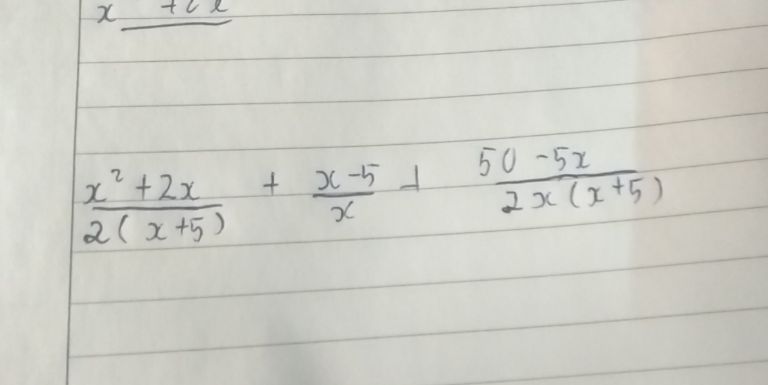 x² + 2x / 2(x+5) + x-5 / x + 50 - 5x / 2x(x+5)